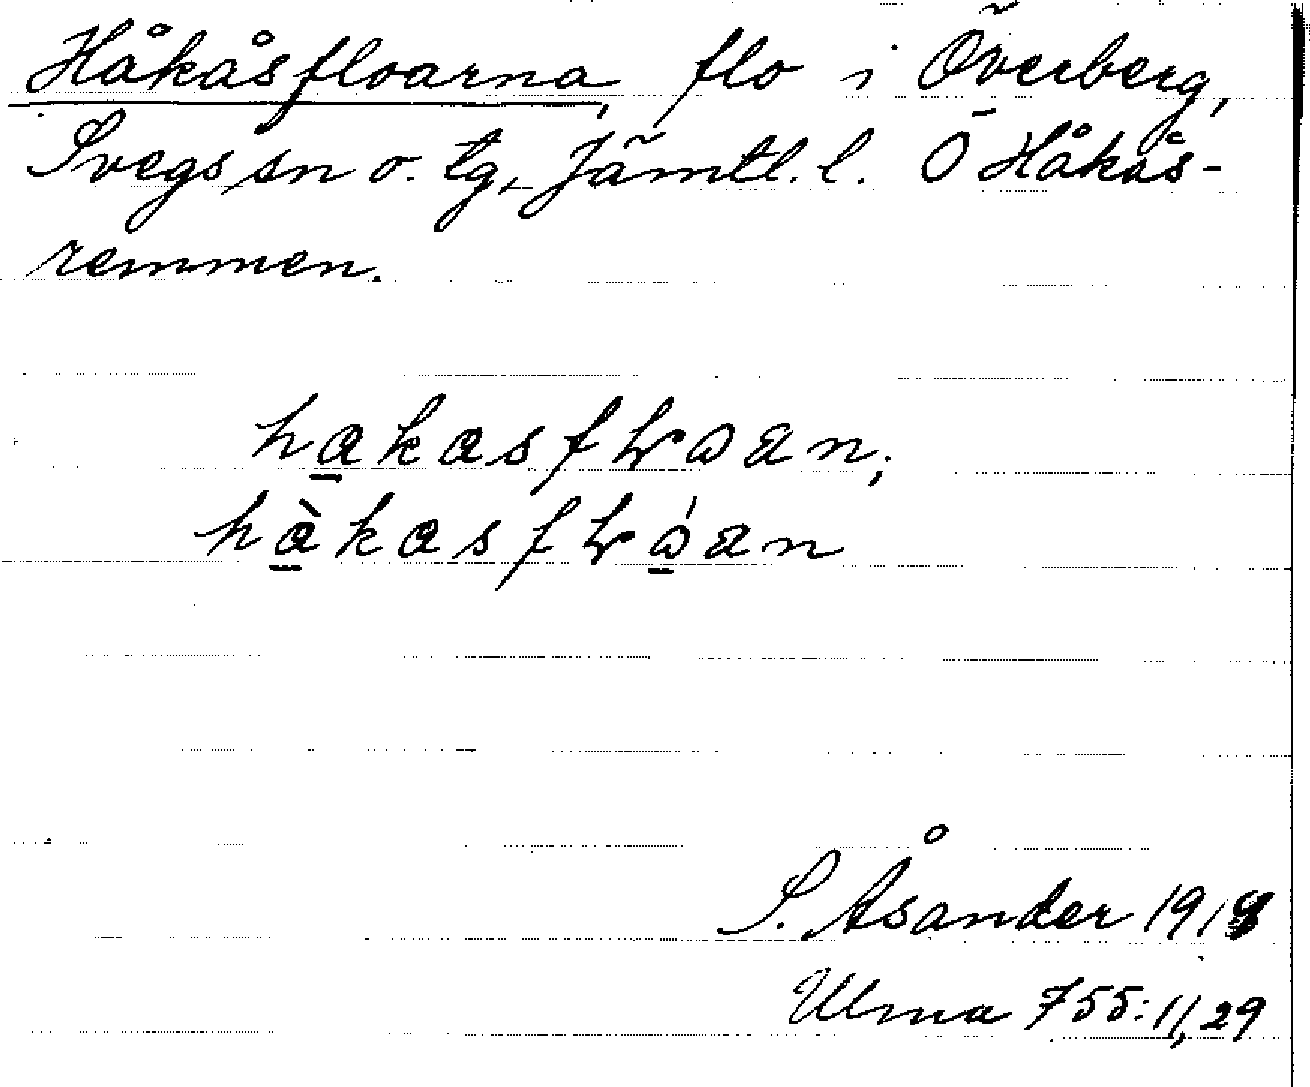 Håkåsfloarna, flo i Överberg,
Svegs sn o. tg, Jämtl. l. Ö Håkås-
remmen.
hakasflωan,
hàkasflώan
S. Åsander 1918
Ulma 755: 11, 29